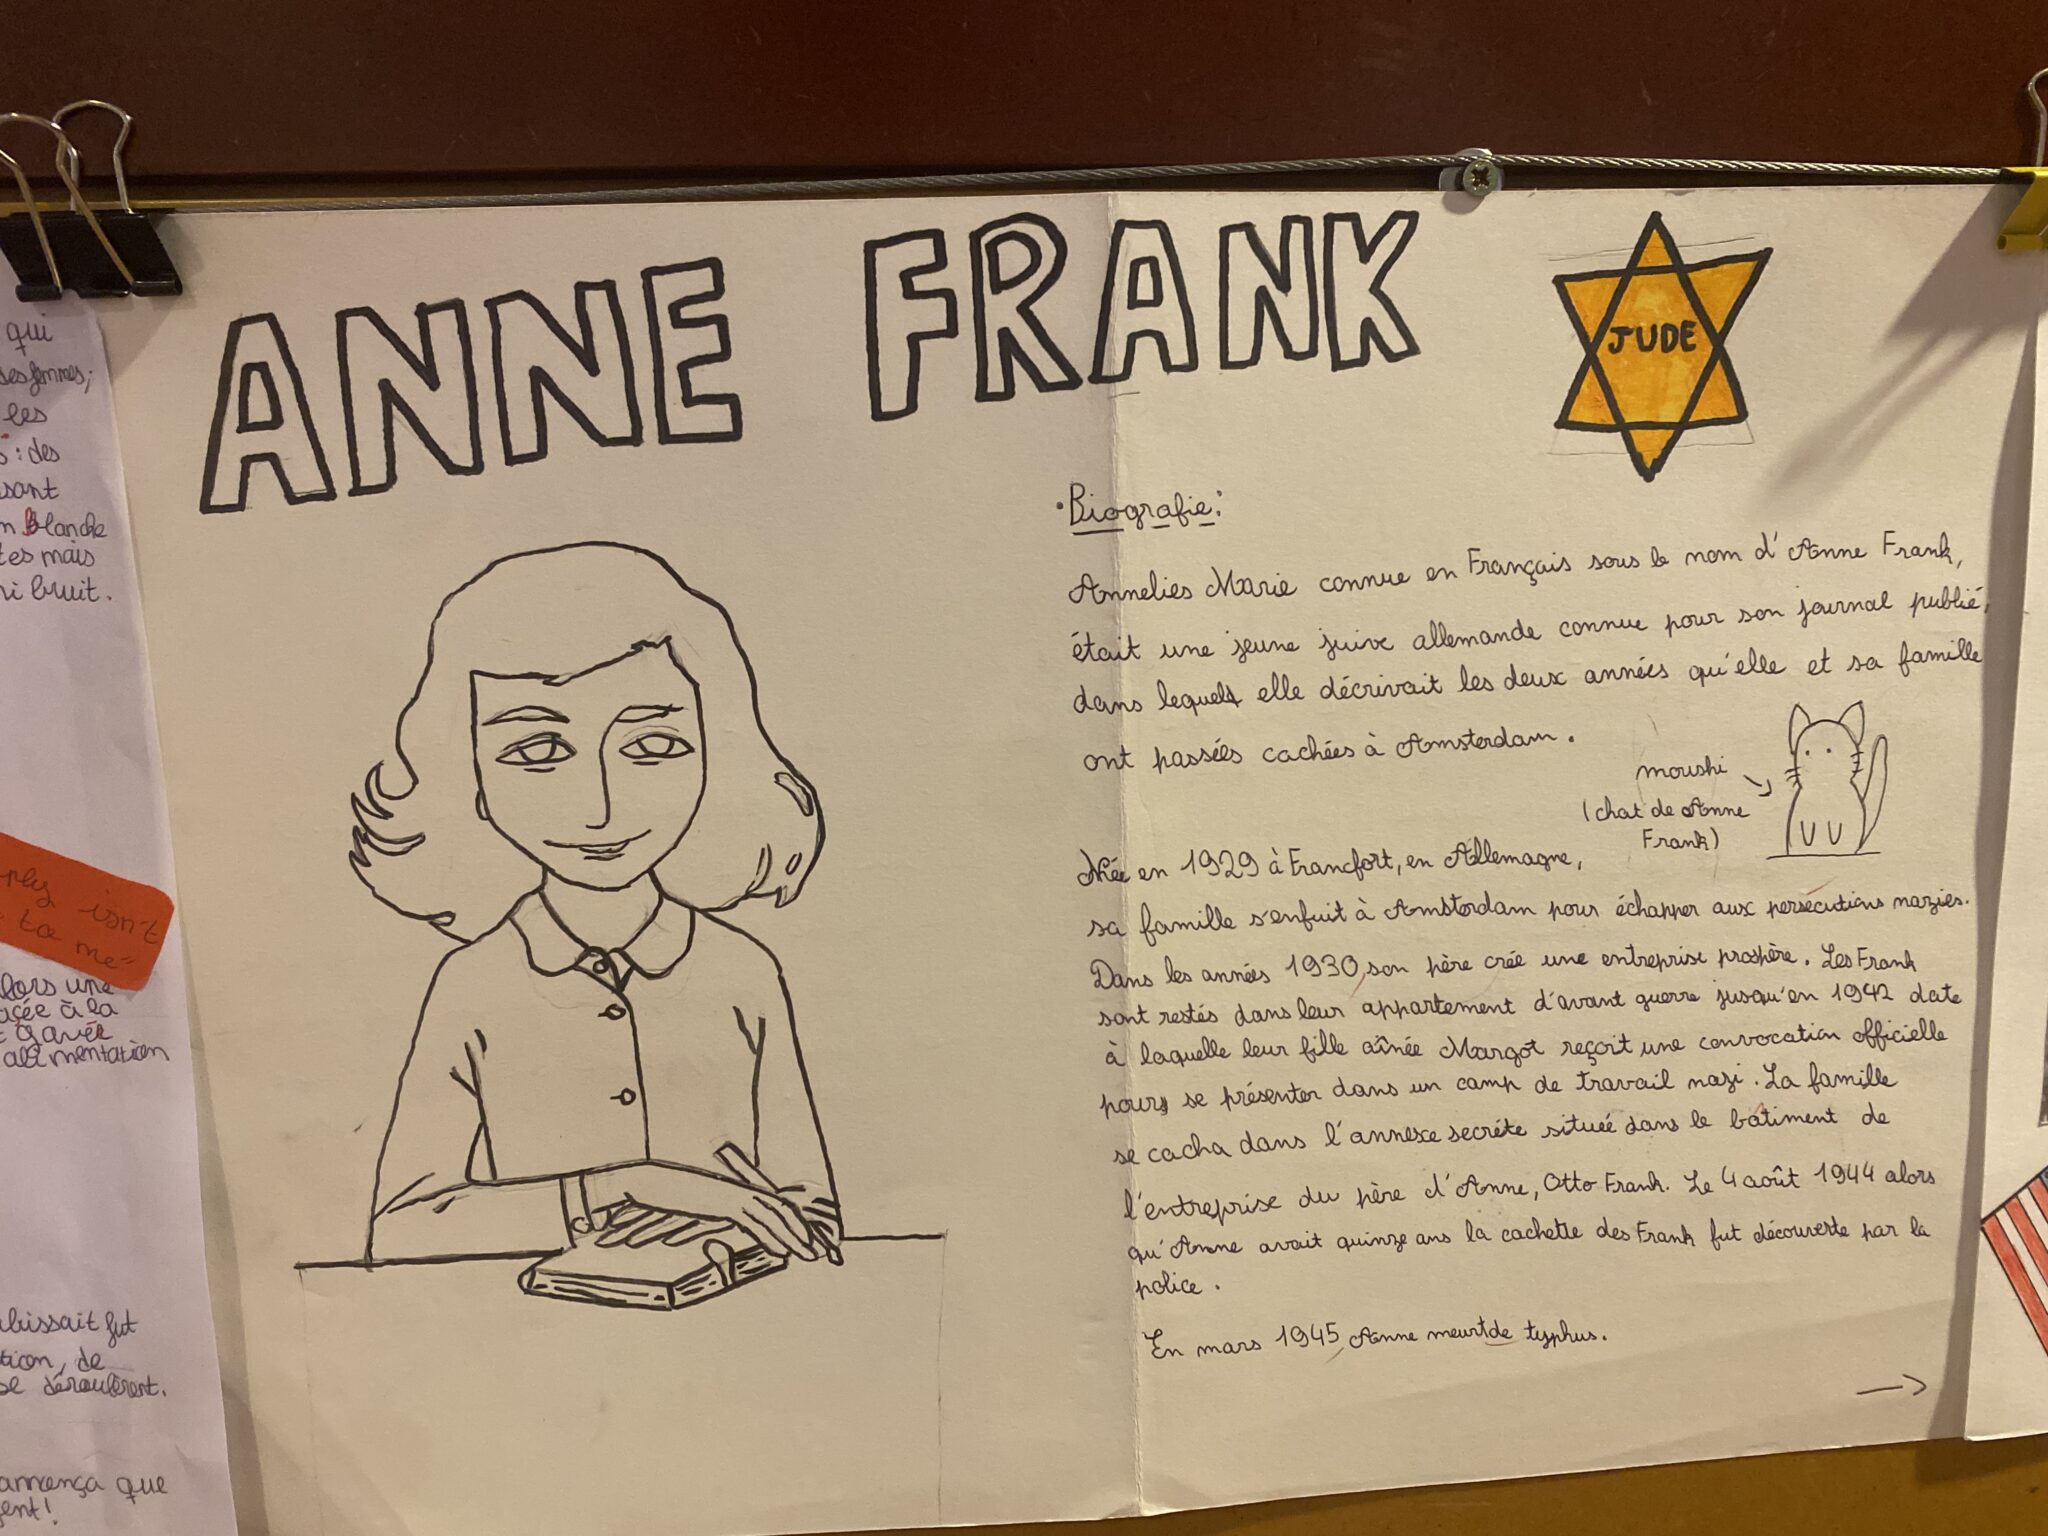 ANNE FRANK
JUDE
• Biografie:
Annelies Marie connue en Français sous le nom d'Anne Frank,
était une jeune juive allemande connue pour son journal publié,
dans lequels elle décrivait les deux années qu'elle et sa famille
ont passées cachées à Amsterdam.
moushi
(chat de Anne
Frank)
Née en 1929 à Francfort, en Allemagne,
sa famille s'enfuit à Amsterdam pour échapper aux persécutions nazies.
Dans les années 1930, son père crée une entreprise prospère. Les Frank
sont restés dans leur appartement d'avant guerre jusqu'en 1942 date
à laquelle leur fille aînée Margot reçoit une convocation officielle
pour se présenter dans un camp de travail nazi. La famille
se cacha dans l'annexe secréte située dans le bâtiment de
l'entreprise du père d'Anne, Otto Frank. Le 4 août 1944 alors
qu'Anne avait quinze ans la cachette des Frank fut découverte par la
police.
En mars 1945, Anne meurt de typhus.
qui
les
: des
sant
blanche
tes mais
ni bruit.
isn't
to me"
alors une
à la
gavée
alimentation
fut
tion, de
se déroulèrent.
que